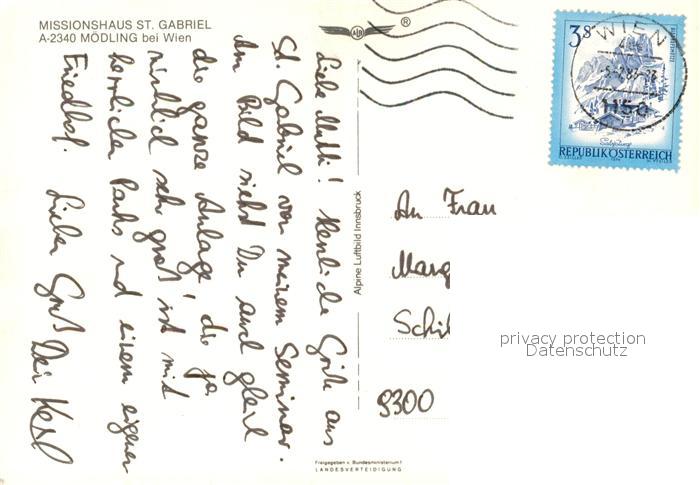 MISSIONSHAUS ST. GABRIEL
A-2340 MÖDLING bei Wien
Liebe Mutti! Herzliche Grüße aus
St. Gabriel von meinem Seminar.
Am Bild siehst Du auch gleich
die ganze Anlage, die ja
wirklich sehr groß ist mit
herrlichem Park und einem eigenen
Friedhof. Liebe Grüße Dein Karl
Alpine Luftbild Innsbruck
Freigegeben v. Bundesministerium f.
LANDESVERTEIDIGUNG
ALB
®
WIEN
1150
3S
REPUBLIK ÖSTERREICH
An Frau
Marg
Schil
9300
privacy protection
Datenschutz